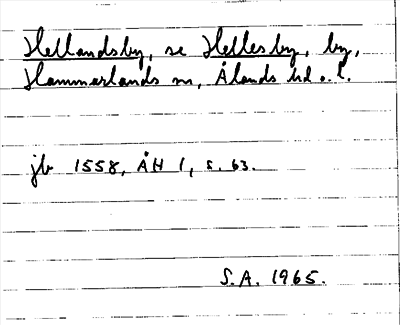 Hellandsby, se Hellesby, by,
Hammarlands sn, Ålands hd o. l.
jb 1558, ÅH 1, s. 63.
S.A. 1965.